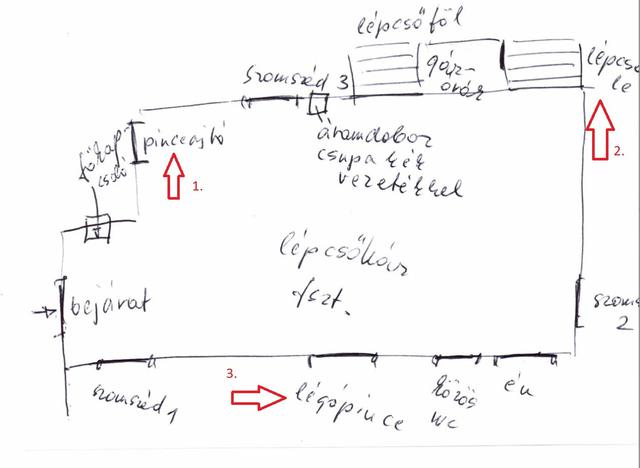 lépcső föl
szomszéd 3
gáz-
órák
lépcső
le
pinceajtó
1.
2.
áramdoboz
csupa kék
vezetékkel
főkap-
csoló
lépcsőház
fszt.
bejárat
szomsz
2
3.
szomszéd 1
légópince
közös
WC
én